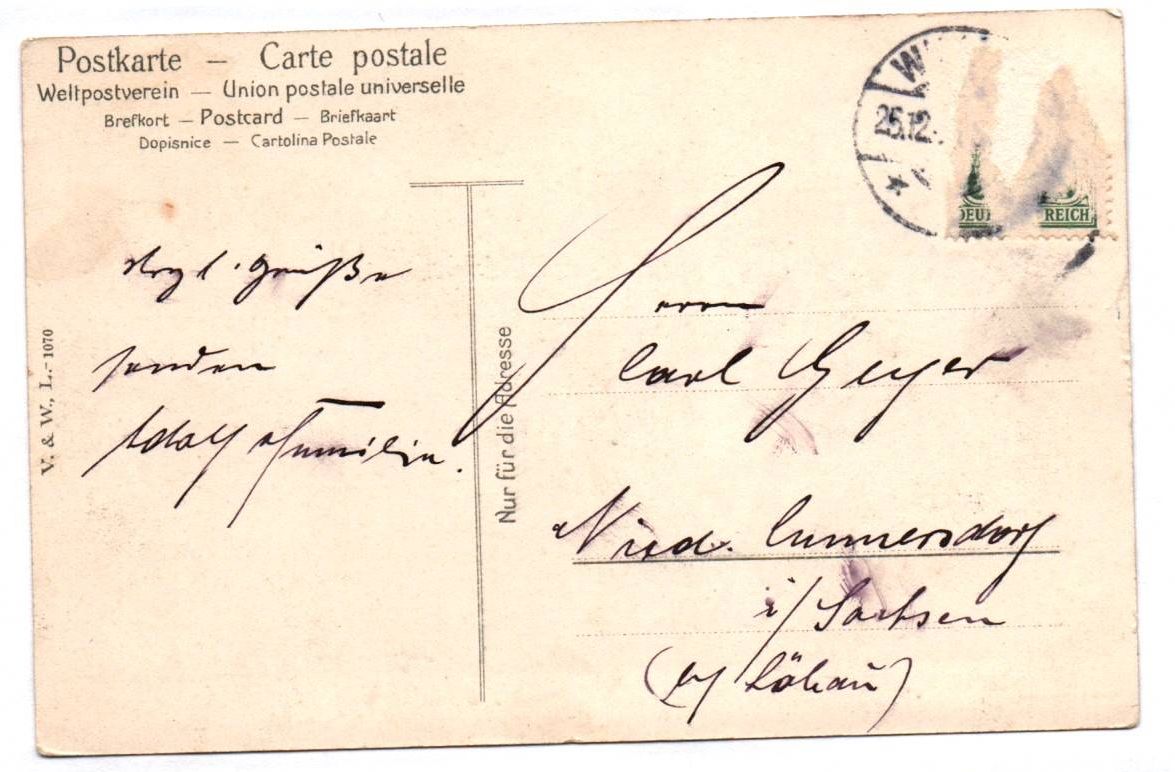 Postkarte — Carte postale
Weltpostverein — Union postale universelle
Brefkort — Postcard — Briefkaart
Dopisnice — Cartolina Postale
W
25.12.
DEU REICH
V. & W., L.- 1070
Nur für die Adresse
Hrzl. Grüße
senden
Adolf & Familie.
Herrn
Carl Geyer
Nied. Cunnersdorf
i/ Sachsen
(b/ Löbau)